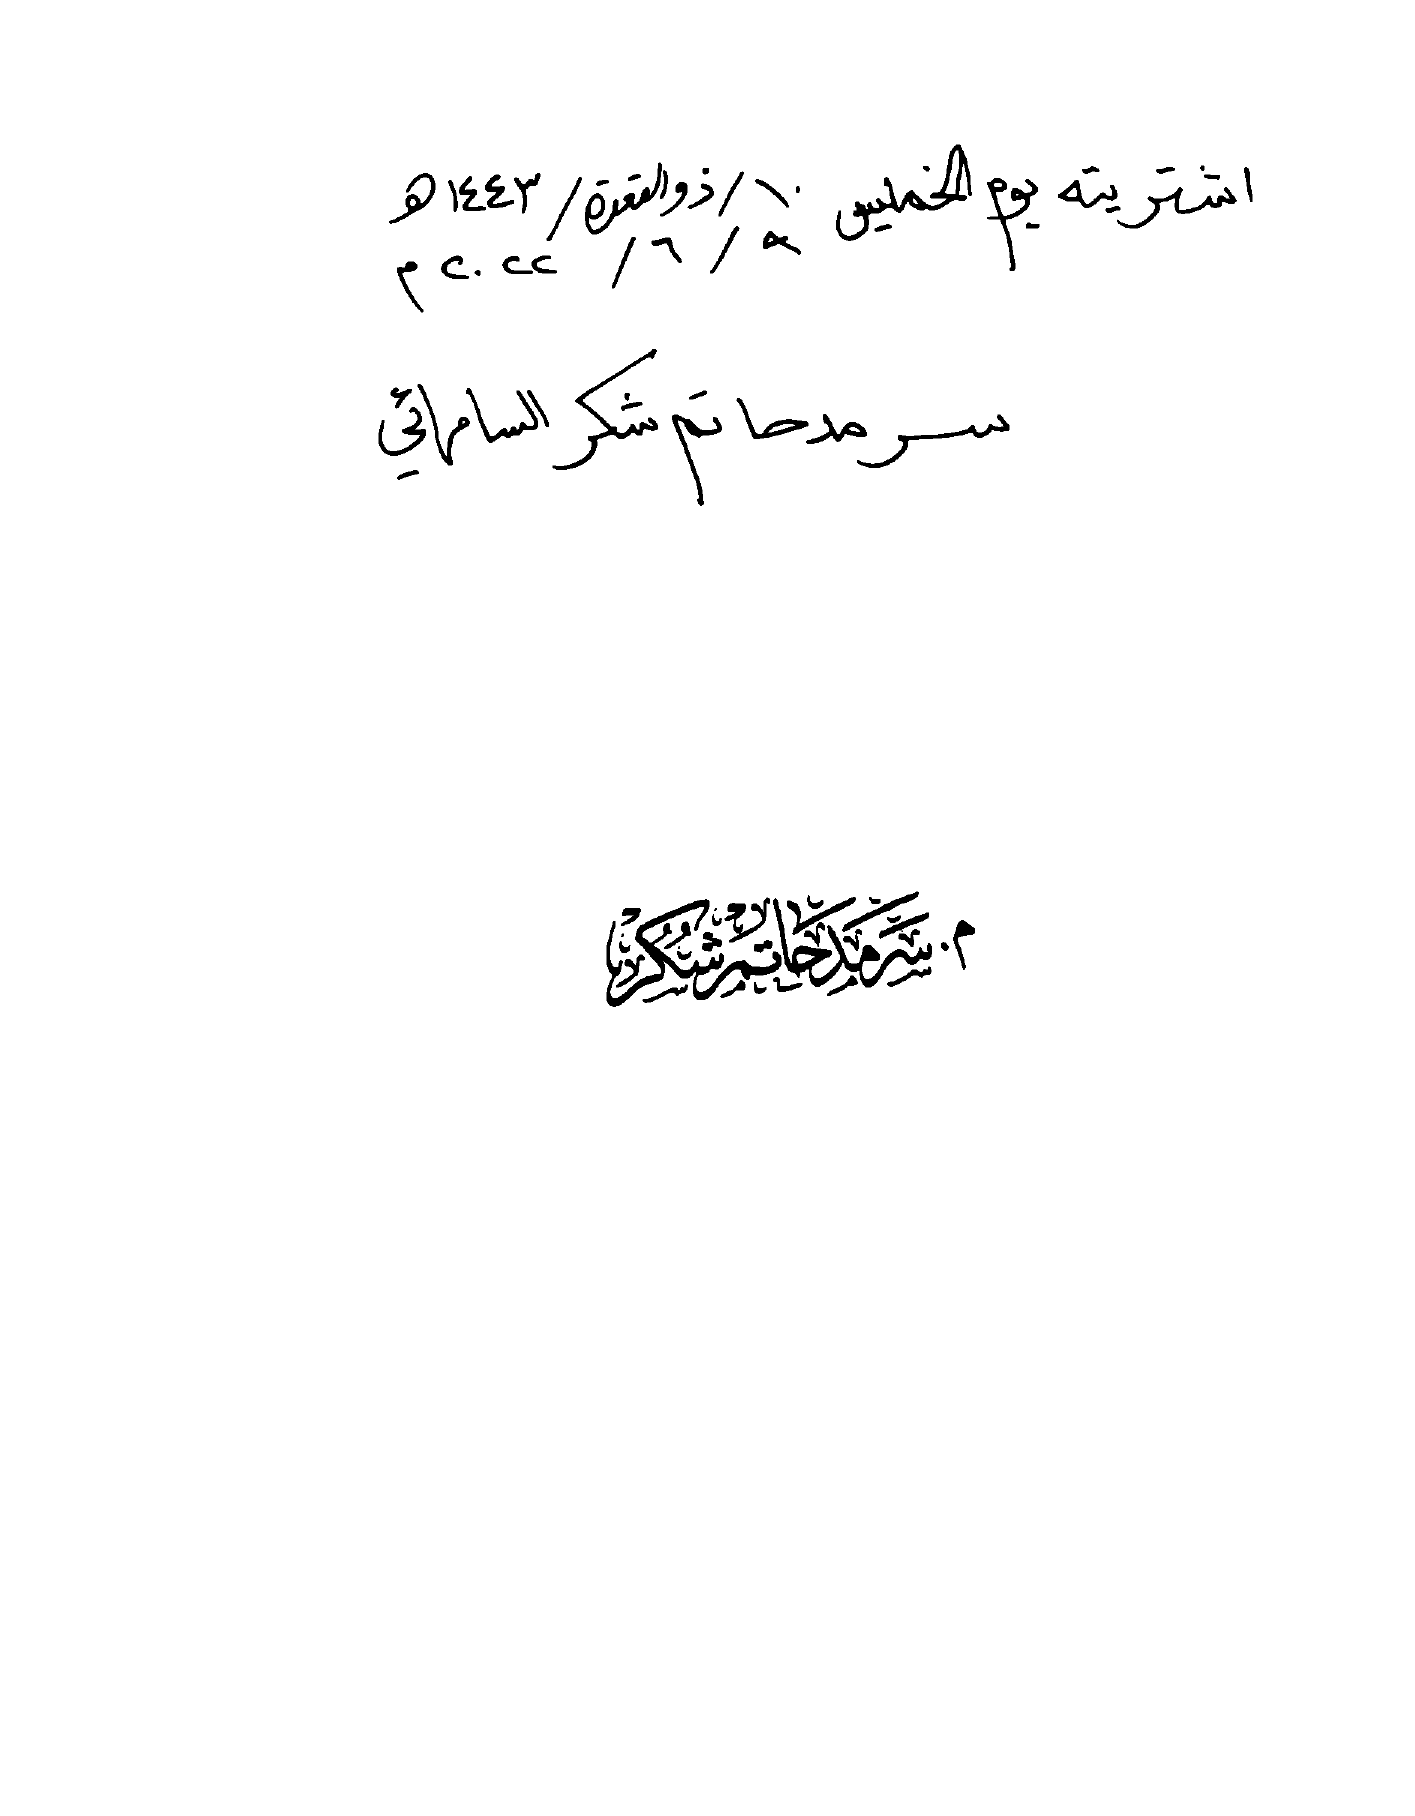 اشتريته يوم الخميس ١٠/ذو القعدة/١٤٤٣ هـ
٩/٦/٢٠٢٢ م
سرمد حاتم شكر السامرائي
م. سرمد حاتم شكر